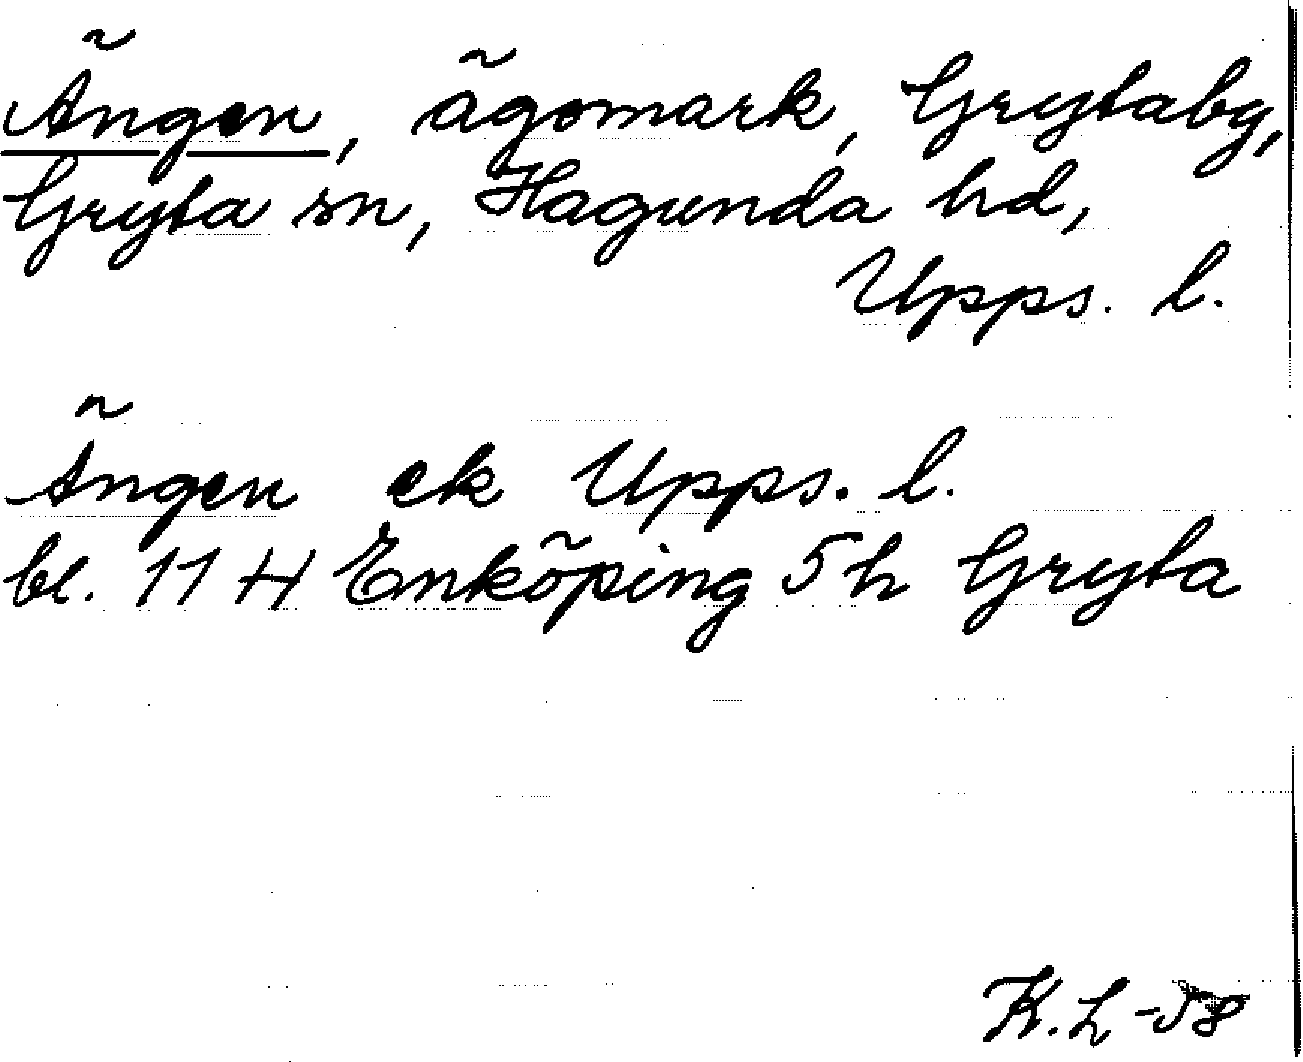 Ängen, ägomark, Grytaby,
Gryta sn, Hagunda hd,
Upps. l.
Ängen ek Upps. l.
bl. 11 H Enköping 5h Gryta
K.L -58